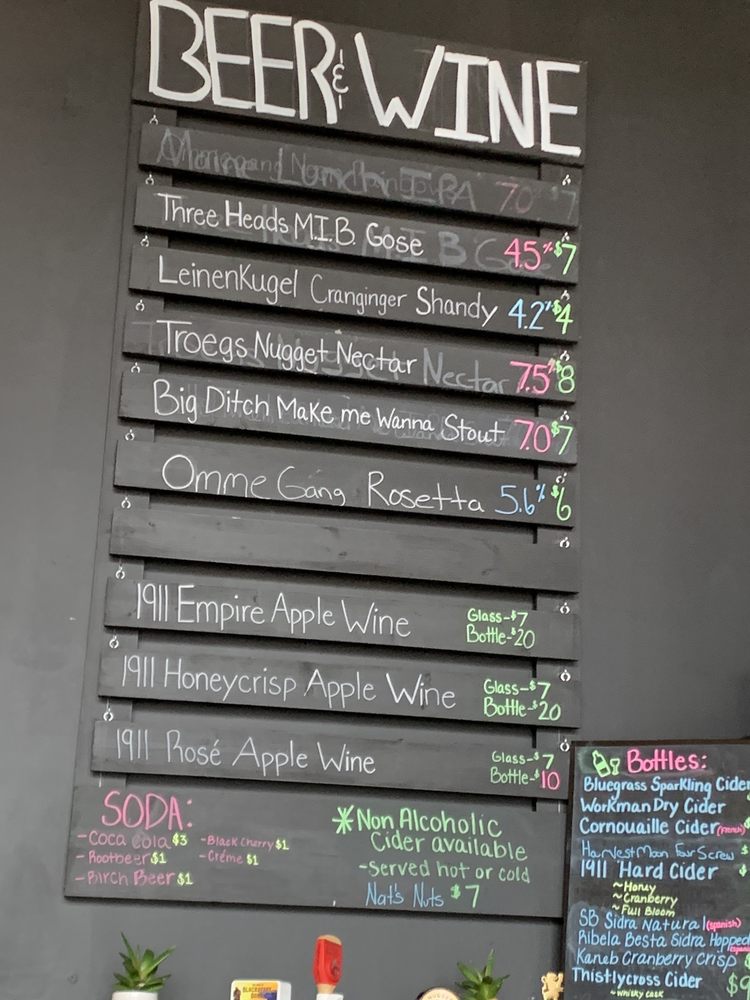 BEER & WINE
IPA 7.0 7
Three Heads M.I.B. Gose 4.5% $7
LeinenKugel Cranginger Shandy 4.2% $4
Troegs Nugget Nectar Nectar 7.5% $8
Big Ditch Make me Wanna Stout 7.0 $7
Omme Gang Rosetta 5.6% $6
1911 Empire Apple Wine Glass-$7
Bottle-$20
1911 Honeycrisp Apple Wine Glass-$7
Bottle-$20
1911 Rosé Apple Wine Glass-$7
Bottle-$10
SODA:
-Coca Cola $3 -Black Cherry $1
-Rootbeer $1 -Créme $1
-Birch Beer $1
*Non Alcoholic
Cider available
-Served hot or cold
Nat's Nuts $7
Bottles:
Bluegrass Sparkling Cider
Workman Dry Cider
Cornouaille Cider (French) $
Harvest Moon Four Screw $
1911 Hard Cider
~Honey
~Cranberry
~Full Bloom
SB Sidra Natural (spanish)
Ribela Besta Sidra Hopped
Kaneb Cranberry Crisp $
Thistlycross Cider $9
~whisky cask